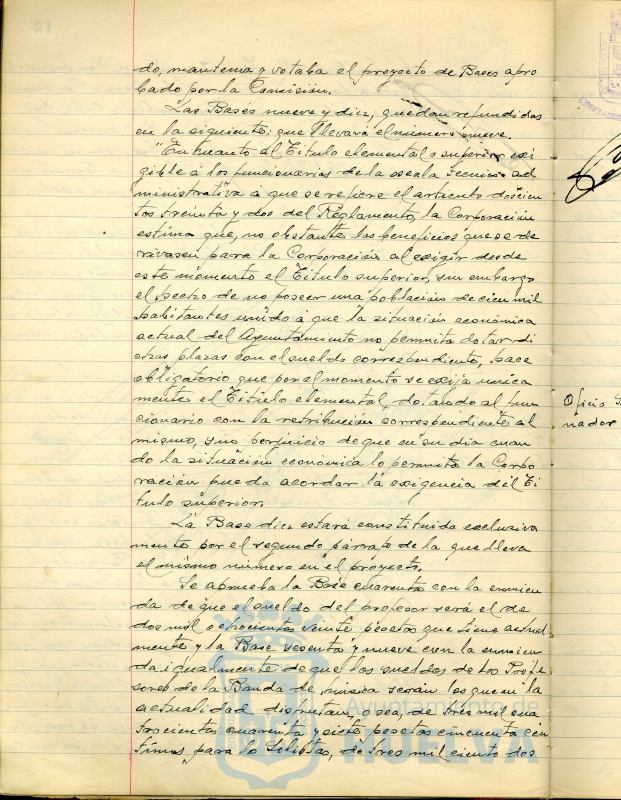 do, mantenia y votaba el proyecto de Bases apro
bado por la Comisión.
Las Bases nueve y diez, quedan refundidas
en la siguiente: que llevará el número nueve.
"En cuanto al Titulo elemental o superior exi
gible á los funcionarios de la escala tecnico-ad
ministrativa á que se refiere el articulo doscien
tos treinta y dos del Reglamento, la Corporación
estima que, no obstante los beneficios que se de
rivasen para la Corporación al exigir desde
este momento el Titulo superior, sin embargo
el hecho de no poseer una población de cien mil
habitantes unido á que la situación económica
actual del Ayuntamiento no permita dotar di
chas plazas con el sueldo correspondiente, hace
obligatorio que por el momento se exija unica
mente el Titulo elemental, dotando al fun
cionario con la retribución correspondiente al
mismo, sin perjuicio de que en su dia cuan
do la situación económica lo permita la Corpo
ración pueda acordar la exigencia del Ti
tulo superior.
La Base diez estará constituida exclusiva
mente por el segundo párrafo de la que lleva
el mismo número en el proyecto.
Se aprueba la Base cuarenta con la enmien
da de que el sueldo del profesor será el de
dos mil ochocientas veinte pesetas que tiene actual
mente y la Base sesenta y nueve con la enmien
da igualmente de que los sueldos de los Profe
sores de la Banda de música serán los que en la
actualidad disfrutan, o sea, de tres mil cua
trocientas cuarenta y siete pesetas cincuenta cen
timos para lo Solistas, de tres mil ciento dos
Oficio
nador
Ayuntamiento de